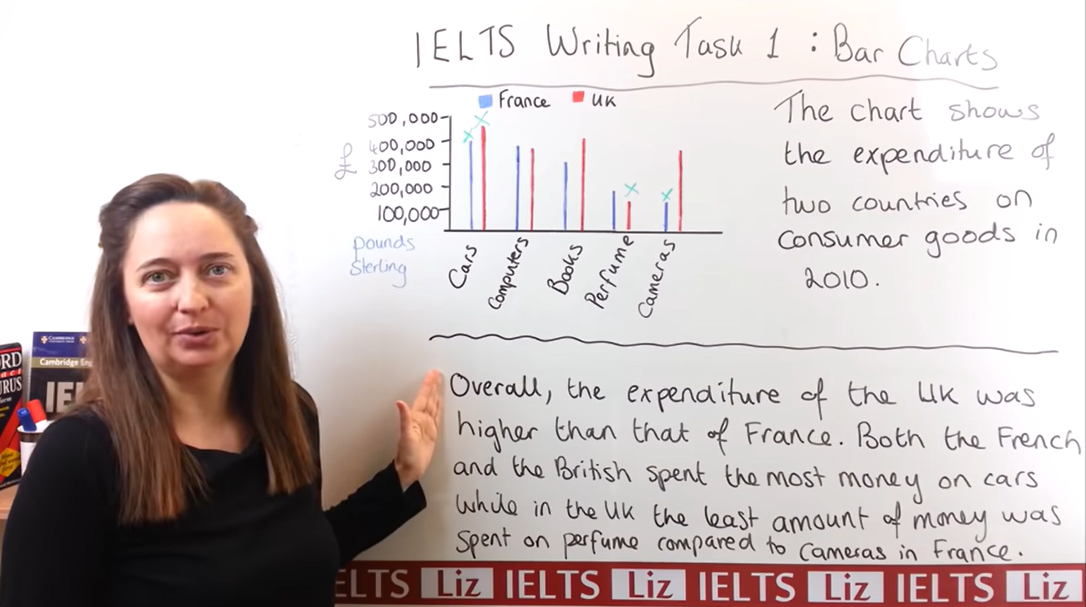 IELTS Writing Task 1 : Bar Charts
France UK
500,000
400,000
300,000
200,000
100,000
£
pounds
sterling
Cars
Computers
Books
Perfume
Cameras
The chart shows
the expenditure of
two countries on
consumer goods in
2010.
Overall, the expenditure of the UK was
higher than that of France. Both the French
and the British spent the most money on cars
while in the UK the least amount of money was
spent on perfume compared to cameras in France.
IELTS Liz IELTS Liz IELTS Liz IELTS Liz
CAMBRIDGE
Cambridge